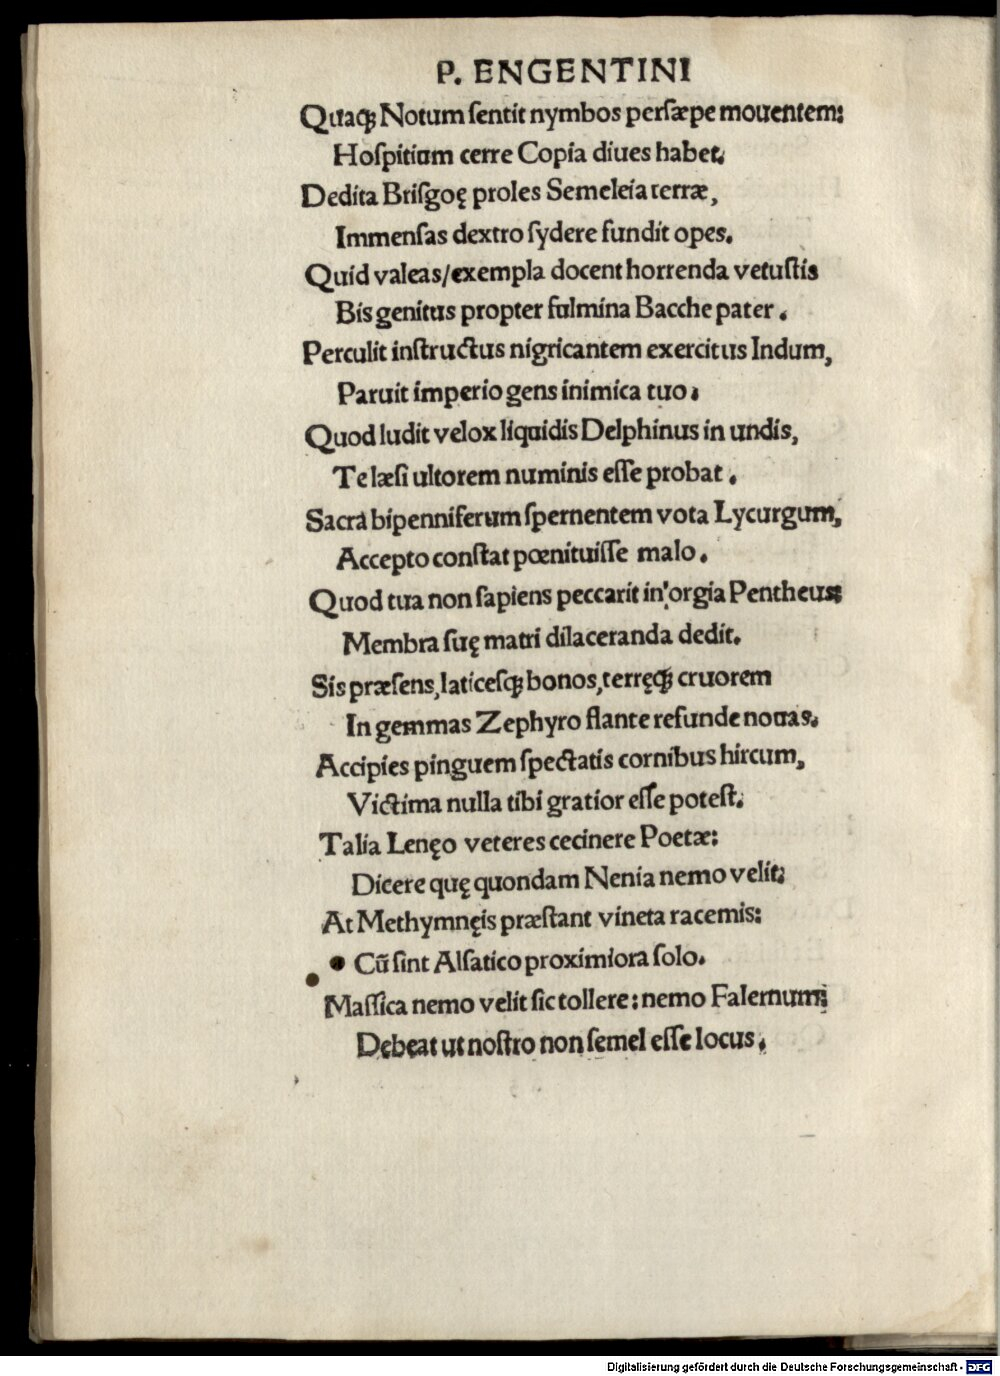 P. ENGENTINI
Quaqꝫ Notum ſentit nymbos perſæpe mouentem:
Hoſpitium cerre Copia diues habet.
Dedita Briſgoę proles Semeleia terræ,
Immenſas dextro ſydere fundit opes.
Quid valeas/exempla docent horrenda vetuſtis
Bis genitus propter fulmina Bacche pater.
Perculit inſtructus nigricantem exercitus Indum,
Paruit imperio gens inimica tuo.
Quod ludit velox liquidis Delphinus in undis,
Te læſi ultorem numinis eſſe probat.
Sacra bipenniferum ſpernentem vota Lycurgum,
Accepto conſtat pœnituiſſe malo.
Quod tua non ſapiens peccarit in orgia Pentheus:
Membra ſuę matri dilaceranda dedit.
Sis præſens, laticeſqꝫ bonos, terręqꝫ cruorem
In gemmas Zephyro flante refunde nouas.
Accipies pinguem ſpectatis cornibus hircum,
Victima nulla tibi gratior eſſe poteſt.
Talia Lenęo veteres cecinere Poetæ:
Dicere quę quondam Nenia nemo velit:
At Methymnęis præſtant vineta racemis:
Cū ſint Alſatico proximiora ſolo.
Maſſica nemo velit ſic tollere: nemo Falernum:
Debeat ut noſtro non ſemel eſſe locus.
Digitalisierung gefördert durch die Deutsche Forschungsgemeinschaft - DFG